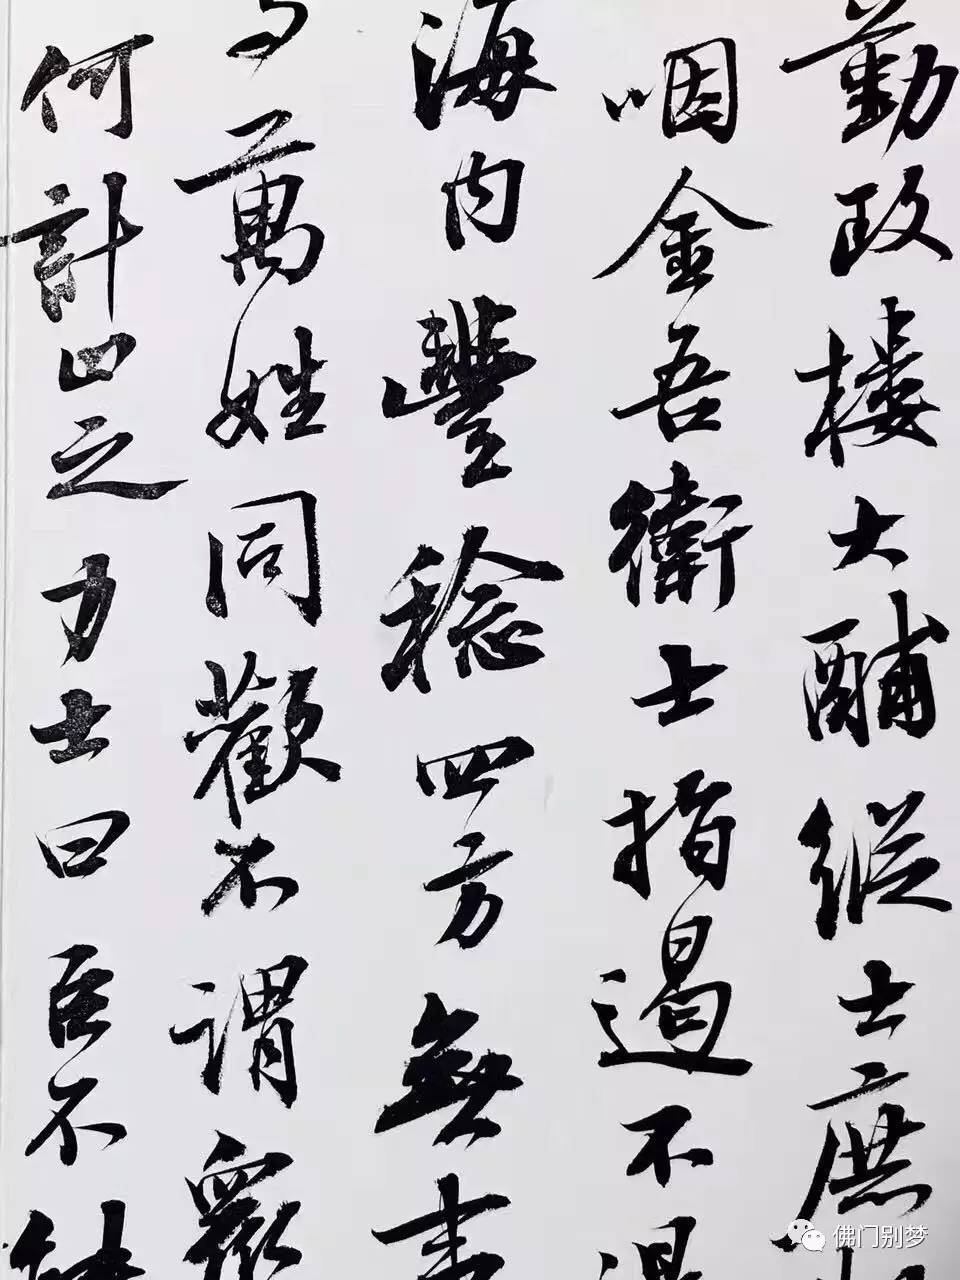 勤政楼大酺縱士庶
咽金吾衛士指遏不得
海内豐稔四方無事
與萬姓同歡不謂衆
何計止之力士曰臣不能
佛门别梦